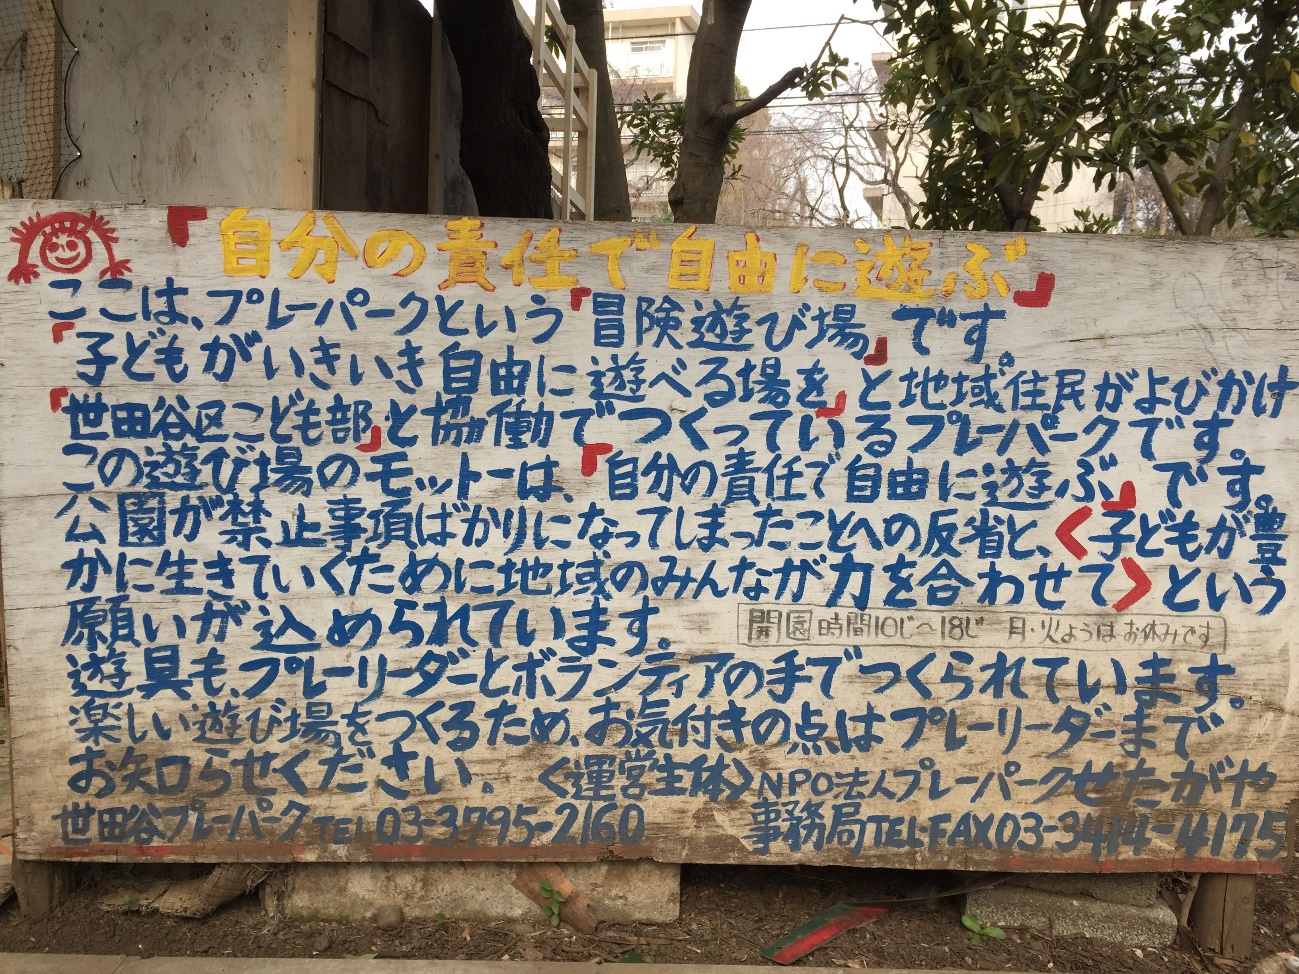 「自分の責任で自由に遊ぶ」
ここは、プレーパークという「冒険遊び場」です。
「子どもがいきいき自由に遊べる場を」と地域住民がよびかけ
「世田谷区こども部」と協働でつくっているプレーパークです。
この遊び場のモットーは、「自分の責任で自由に遊ぶ」です。
公園が禁止事項ばかりになってしまったことへの反省と、<子どもが豊
かに生きていくために地域のみんなが力を合わせて>という
願いが込められています。
開園時間10じ〜18じ 月・火ようはお休みです
遊具も、プレーリーダーとボランティアの手でつくられています。
楽しい遊び場をつくるため、お気付きの点はプレーリーダーまで
お知らせください。<運営主体>NPO法人プレーパークせたがや
世田谷プレーパークTEL03-3795-2160 事務局TEL・FAX03-3414-4175